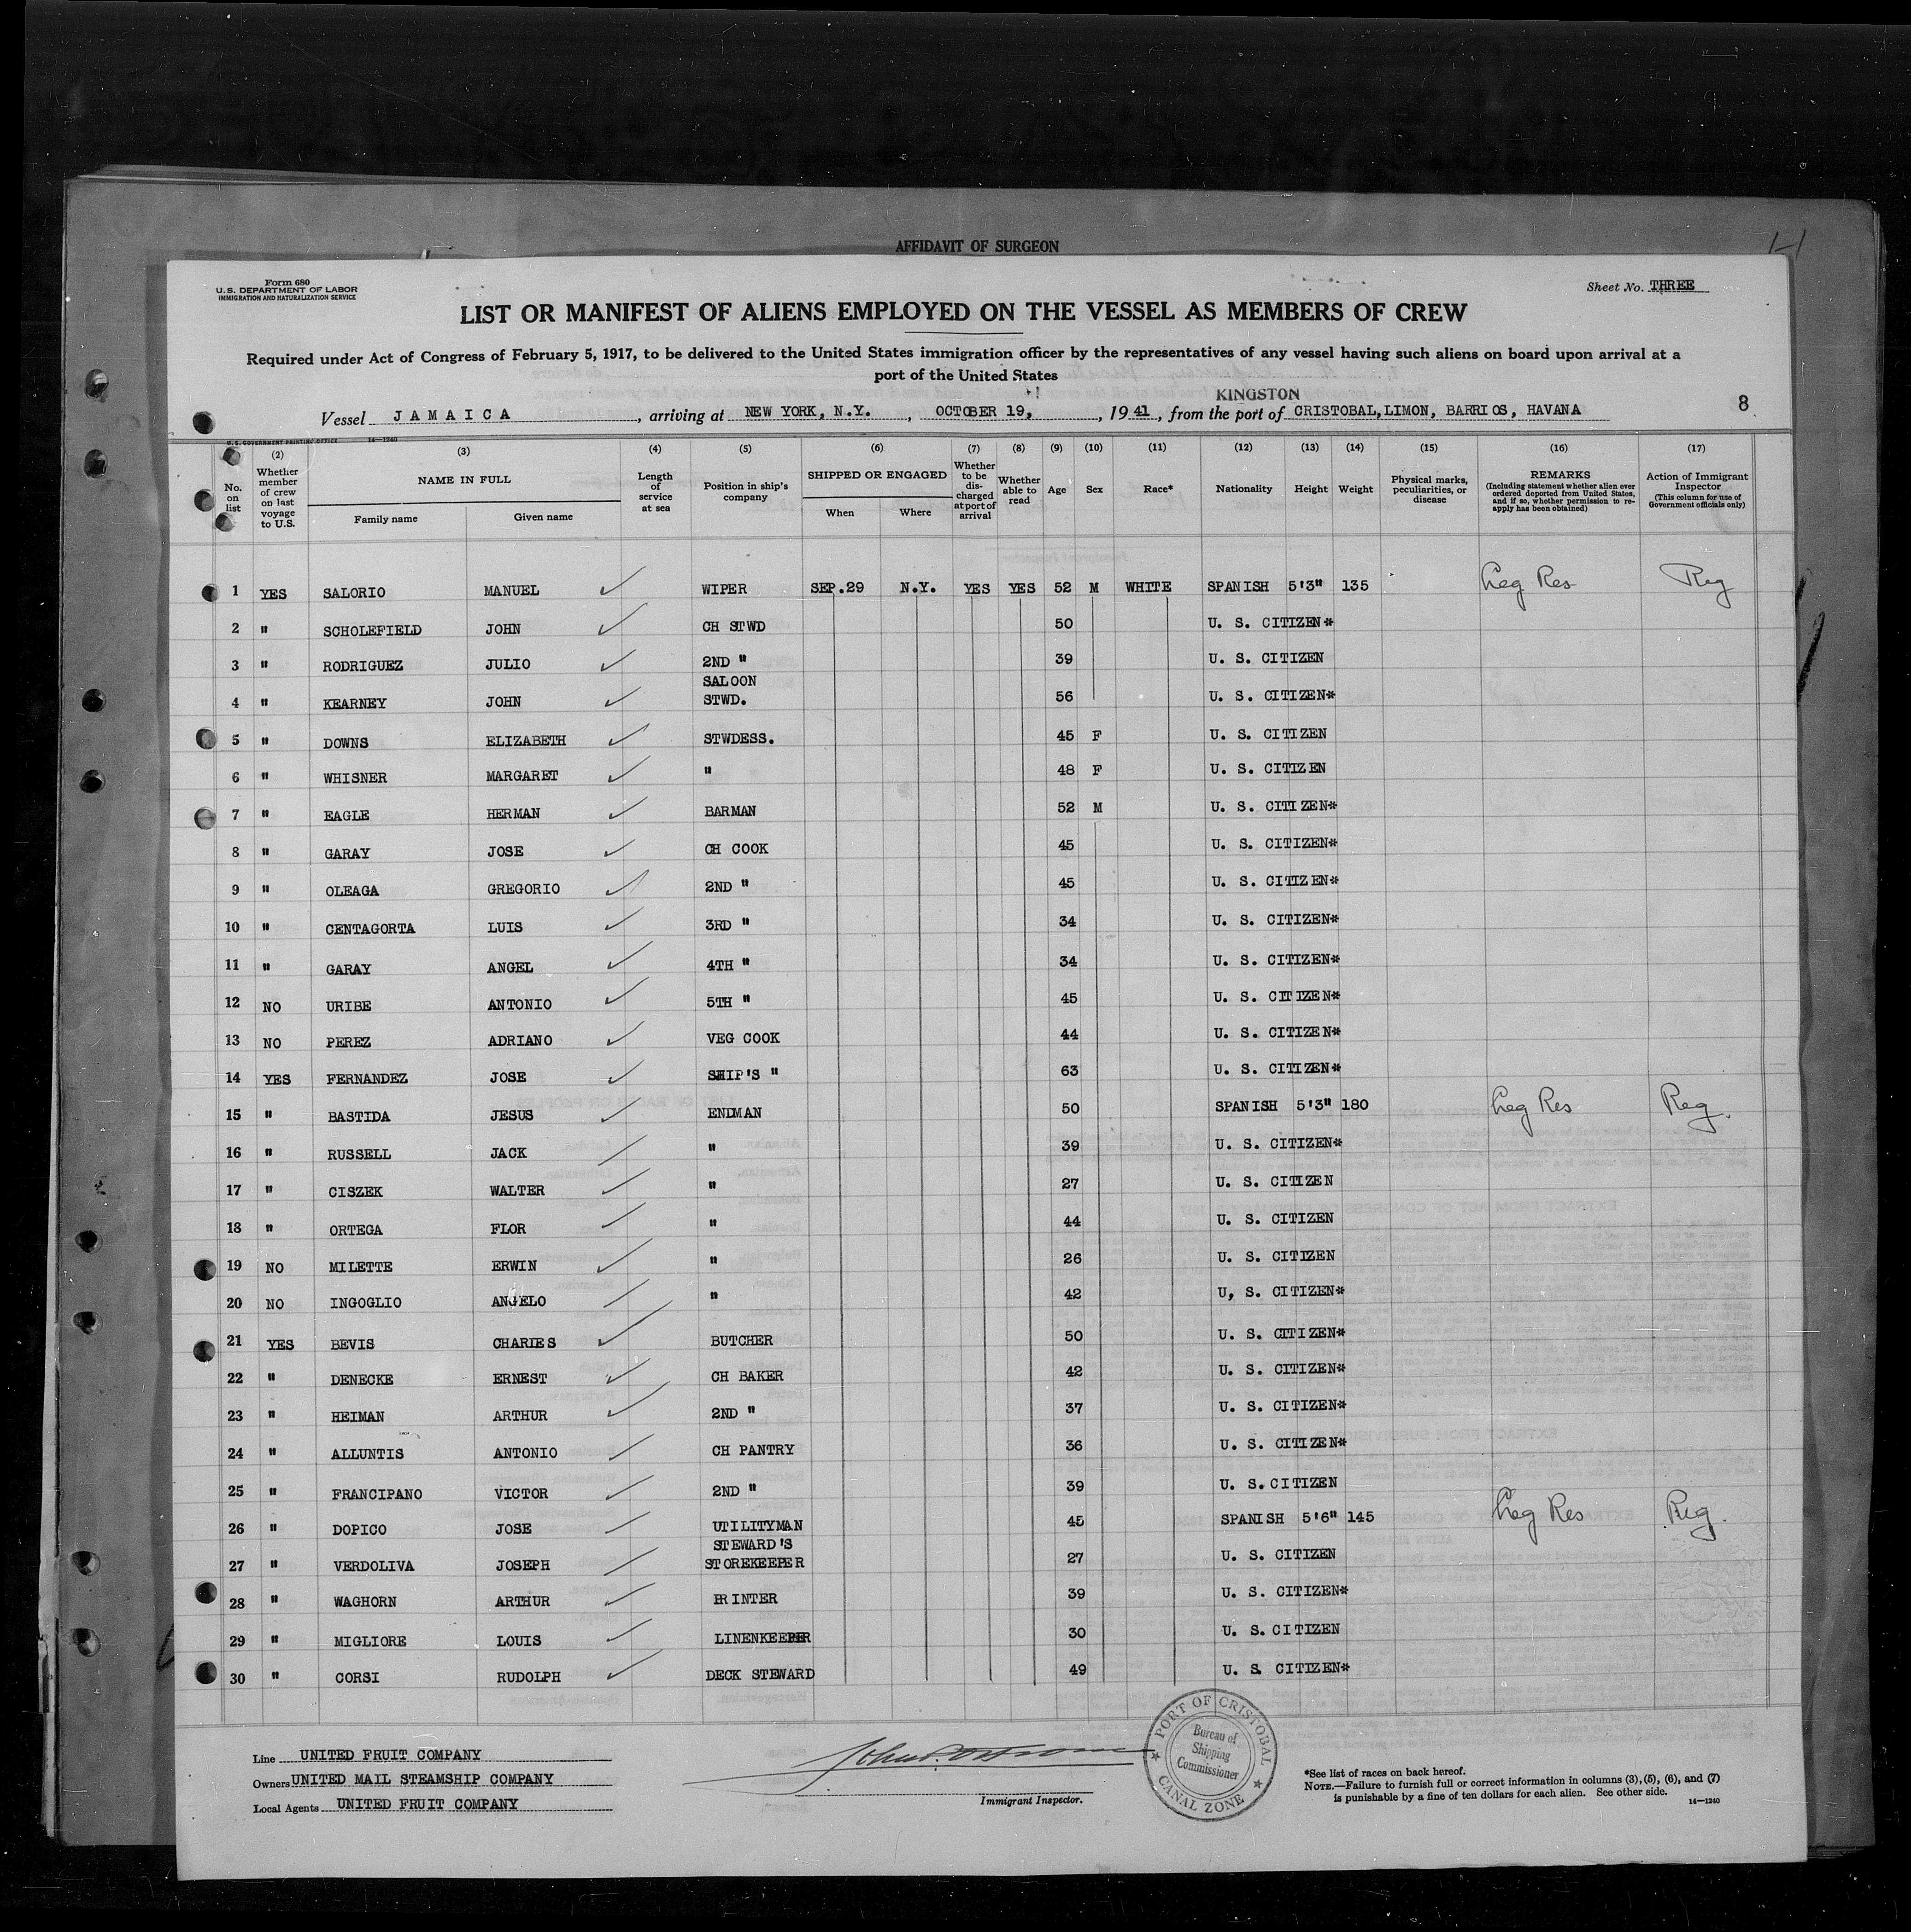 AFFIDAVIT OF SURGEON
Form 680
U. S. DEPARTMENT OF LABOR
IMMIGRATION AND NATURALIZATION SERVICE
Sheet No. THREE
LIST OR MANIFEST OF ALIENS EMPLOYED ON THE VESSEL AS MEMBERS OF CREW
Required under Act of Congress of February 5, 1917, to be delivered to the United States immigration officer by the representatives of any vessel having such aliens on board upon arrival at a
port of the United States
KINGSTON
Vessel JAMAICA, arriving at NEW YORK, N.Y., OCTOBER 19, , 1941, from the port of CRISTOBAL, LIMON, BARRIOS, HAVANA
8
U. S. GOVERNMENT PRINTING OFFICE 14—1240
No. on list
(2) Whether member of crew on last voyage to U.S.
(3) NAME IN FULL
Family name Given name
(4) Length of service at sea
(5) Position in ship's company
(6) SHIPPED OR ENGAGED
When Where
(7) Whether to be discharged at port of arrival
(8) Whether able to read
(9) Age
(10) Sex
(11) Race*
(12) Nationality
(13) Height
(14) Weight
(15) Physical marks, peculiarities, or disease
(16) REMARKS (Including statement whether alien ever ordered deported from United States, and if so, whether permission to reapply has been obtained)
(17) Action of Immigrant Inspector (This column for use of Government officials only)
1 YES SALORIO MANUEL WIPER SEP.29 N.Y. YES YES 52 M WHITE SPANISH 5'3" 135 Leg Res Reg
2 " SCHOLEFIELD JOHN CH STWD 50 U. S. CITIZEN*
3 " RODRIGUEZ JULIO 2ND " 39 U. S. CITIZEN
4 " KEARNEY JOHN SALOON STWD. 56 U. S. CITIZEN*
5 " DOWNS ELIZABETH STWDESS. 45 F U. S. CITIZEN
6 " WHISNER MARGARET " 48 F U. S. CITIZEN
7 " EAGLE HERMAN BARMAN 52 M U. S. CITIZEN*
8 " GARAY JOSE CH COOK 45 U. S. CITIZEN*
9 " OLEAGA GREGORIO 2ND " 45 U. S. CITIZEN*
10 " CENTAGORTA LUIS 3RD " 34 U. S. CITIZEN*
11 " GARAY ANGEL 4TH " 34 U. S. CITIZEN*
12 NO URIBE ANTONIO 5TH " 45 U. S. CITIZEN*
13 NO PEREZ ADRIANO VEG COOK 44 U. S. CITIZEN*
14 YES FERNANDEZ JOSE SHIP'S " 63 U. S. CITIZEN*
15 " BASTIDA JESUS ENDMAN 50 SPANISH 5'3" 180 Leg Res Reg.
16 " RUSSELL JACK " 39 U. S. CITIZEN*
17 " CISZEK WALTER " 27 U. S. CITIZEN
18 " ORTEGA FLOR " 44 U. S. CITIZEN
19 NO MILETTE ERWIN " 26 U. S. CITIZEN
20 NO INGOGLIO ANGELO " 42 U, S. CITIZEN*
21 YES BEVIS CHARLES BUTCHER 50 U. S. CITIZEN*
22 " DENECKE ERNEST CH BAKER 42 U. S. CITIZEN*
23 " HEIMAN ARTHUR 2ND " 37 U. S. CITIZEN*
24 " ALLUNTIS ANTONIO CH PANTRY 36 U. S. CITIZEN*
25 " FRANCIPANO VICTOR 2ND " 39 U. S.CITIZEN
26 " DOPICO JOSE UTILITYMAN 45 SPANISH 5'6" 145 Leg Res Reg.
27 " VERDOLIVA JOSEPH STEWARD'S STOREKEEPER 27 U. S. CITIZEN
28 " WAGHORN ARTHUR PRINTER 39 U. S. CITIZEN*
29 " MIGLIORE LOUIS LINENKEEPER 30 U. S.CITIZEN
30 " CORSI RUDOLPH DECK STEWARD 49 U. S. CITIZEN*
Line UNITED FRUIT COMPANY
Owners UNITED MAIL STEAMSHIP COMPANY
Local Agents UNITED FRUIT COMPANY
Immigrant Inspector.
PORT OF CRISTOBAL
Bureau of
Shipping
Commissioner
CANAL ZONE
*See list of races on back hereof.
NOTE.—Failure to furnish full or correct information in columns (3), (5), (6), and (7)
is punishable by a fine of ten dollars for each alien. See other side.
14—1240